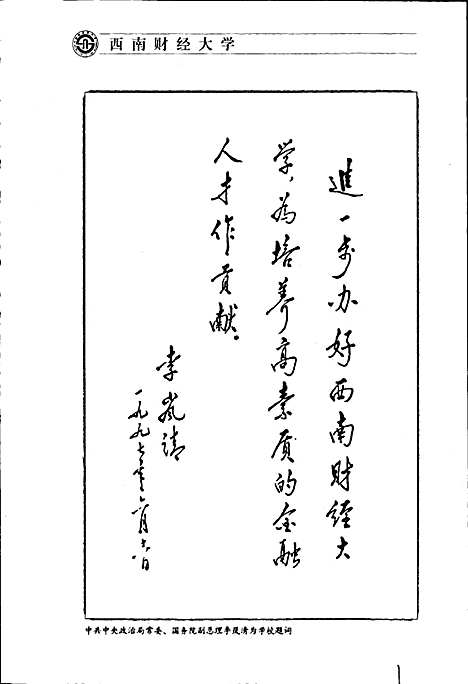 西南财经大学
進一步办好西南财经大
学，为培养高素质的金融
人才作贡献。
李岚清
一九九七年六月十六日
中共中央政治局常委、国务院副总理李岚清为学校题词